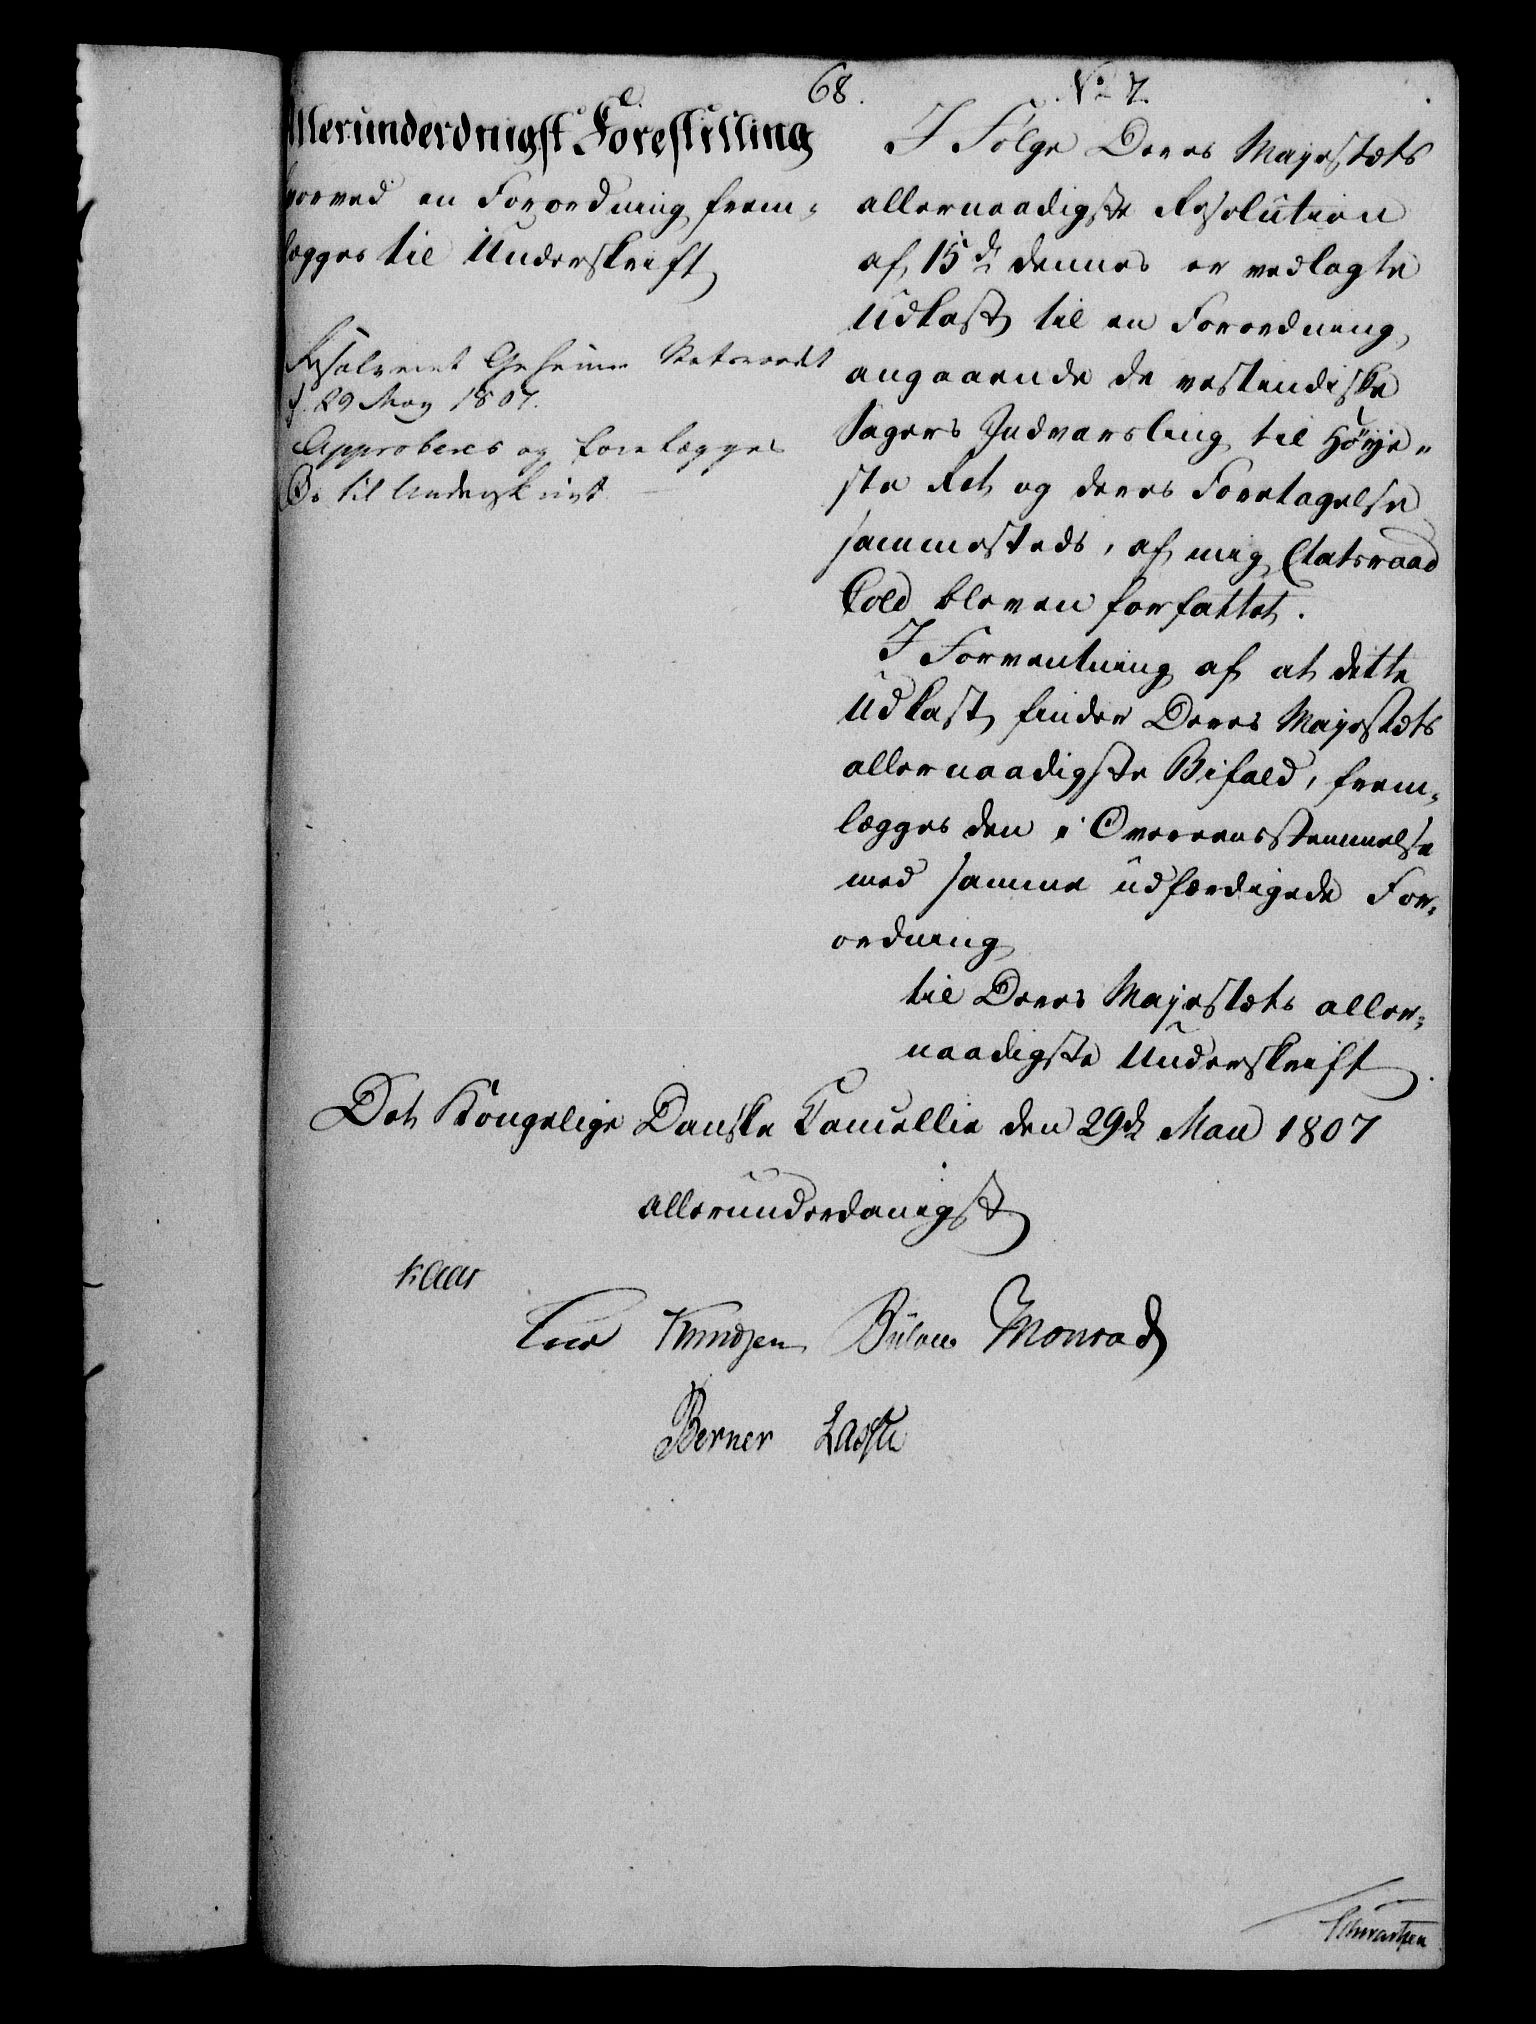 68.
No 7.
Allerunderdnigst Forestilling
hvorved en Forordning frem-
lægges til Underskrift
Resolveret Geheime Statsraadet
d. 29 May 1807.
Approberes og forelægges
Os til Underskrift
I Følge Deres Majestæts
allernaadigste Resolution
af 15de dennes er vedlagte
Udkast til en Forordning,
angaaende de vestindiske
Sagers Indvarsling til Høye-
ste Ret og deres Foretagelse
sammesteds, af mig Etatsraad
Cold bleven forfattet.
I Forventning af at dette
Udkast finder Deres Majestæts
allernaadigste Bifald, frem-
lægges den i Overeensstemmelse
med samme udfærdigede For-
ordning
til Deres Majestæts aller-
naadigste Underskrift.
Det Kongelige Danske Cancellie den 29de Maii 1807
allerunderdanigst
Kaas
Knudsen Bülow Monrad
Berner Lassen